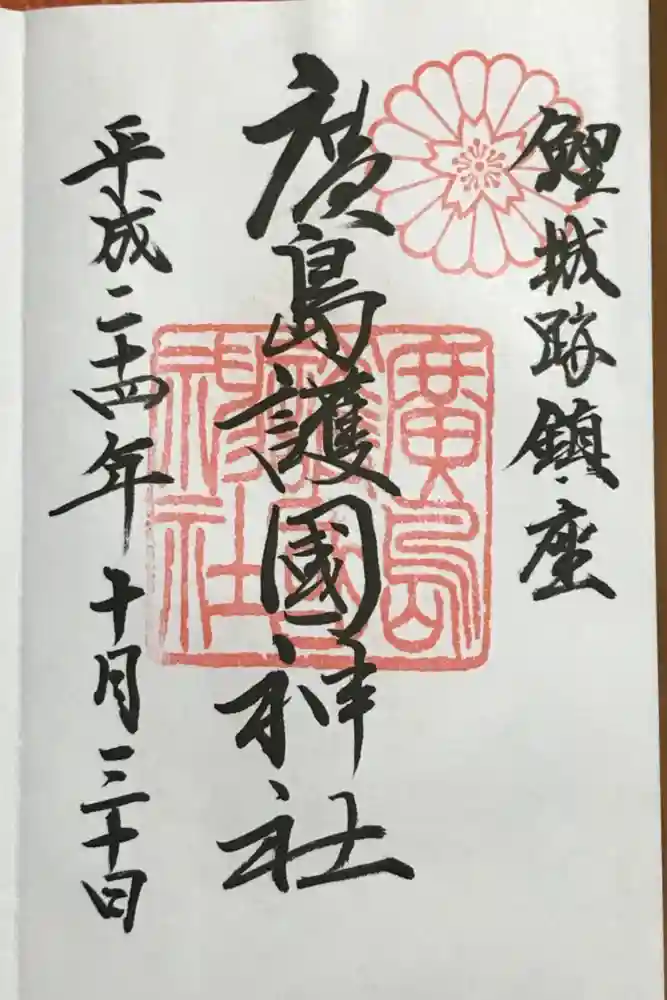 鯉城跡鎮座
廣島護國神社
平成二十四年十月三十日
廣島護國神社